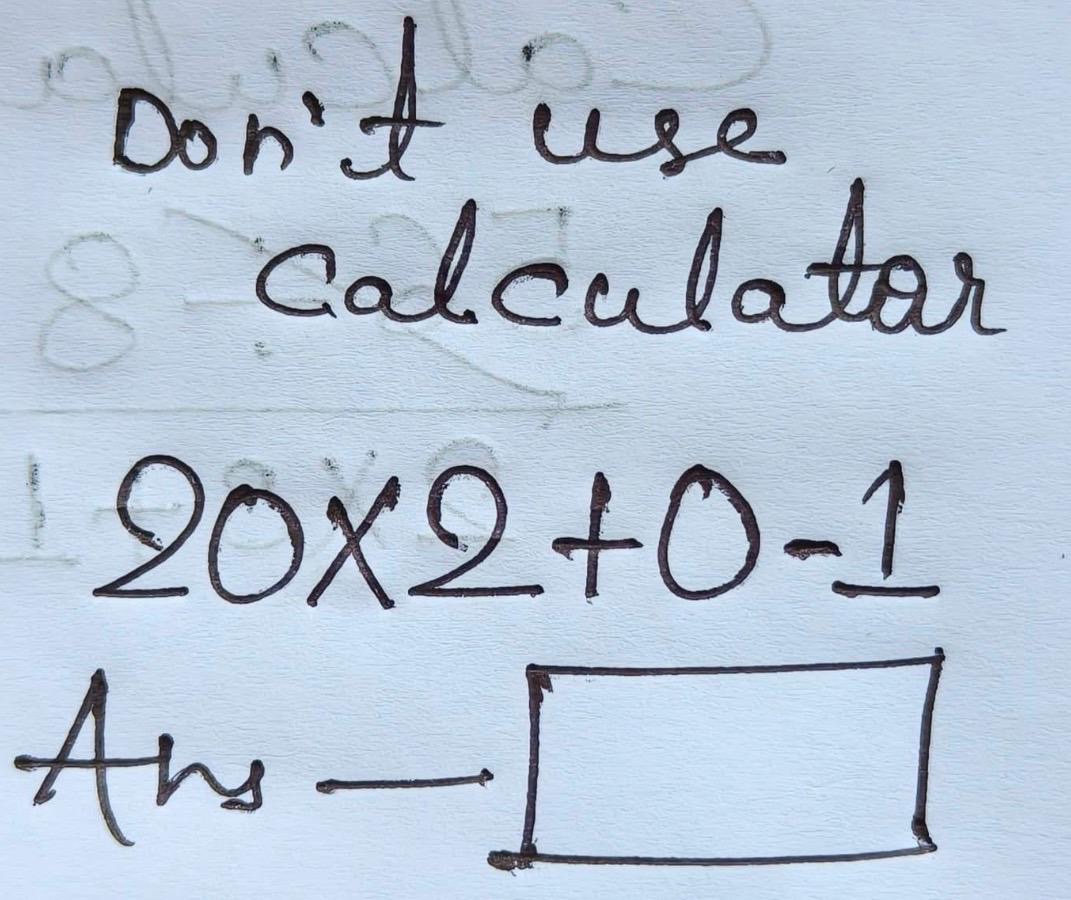 Don't use
Calculator
20x2+0-1
Ans —